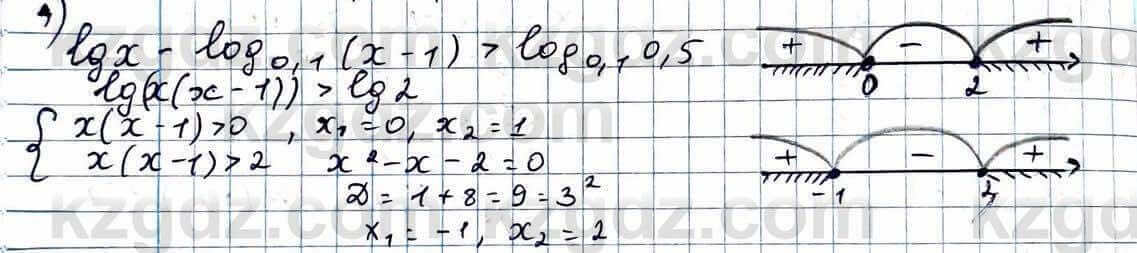 4) lg x - log₀,₁ (x - 1) > log₀,₁ 0,5
lg(x(x - 1)) > lg 2
{ x(x - 1) > 0 , x₁ = 0, x₂ = 1
x(x - 1) > 2 x² - x - 2 = 0
D = 1 + 8 = 9 = 3²
x₁ = -1, x₂ = 2
+ - +
0 2
+ - +
-1
kzgdz.com